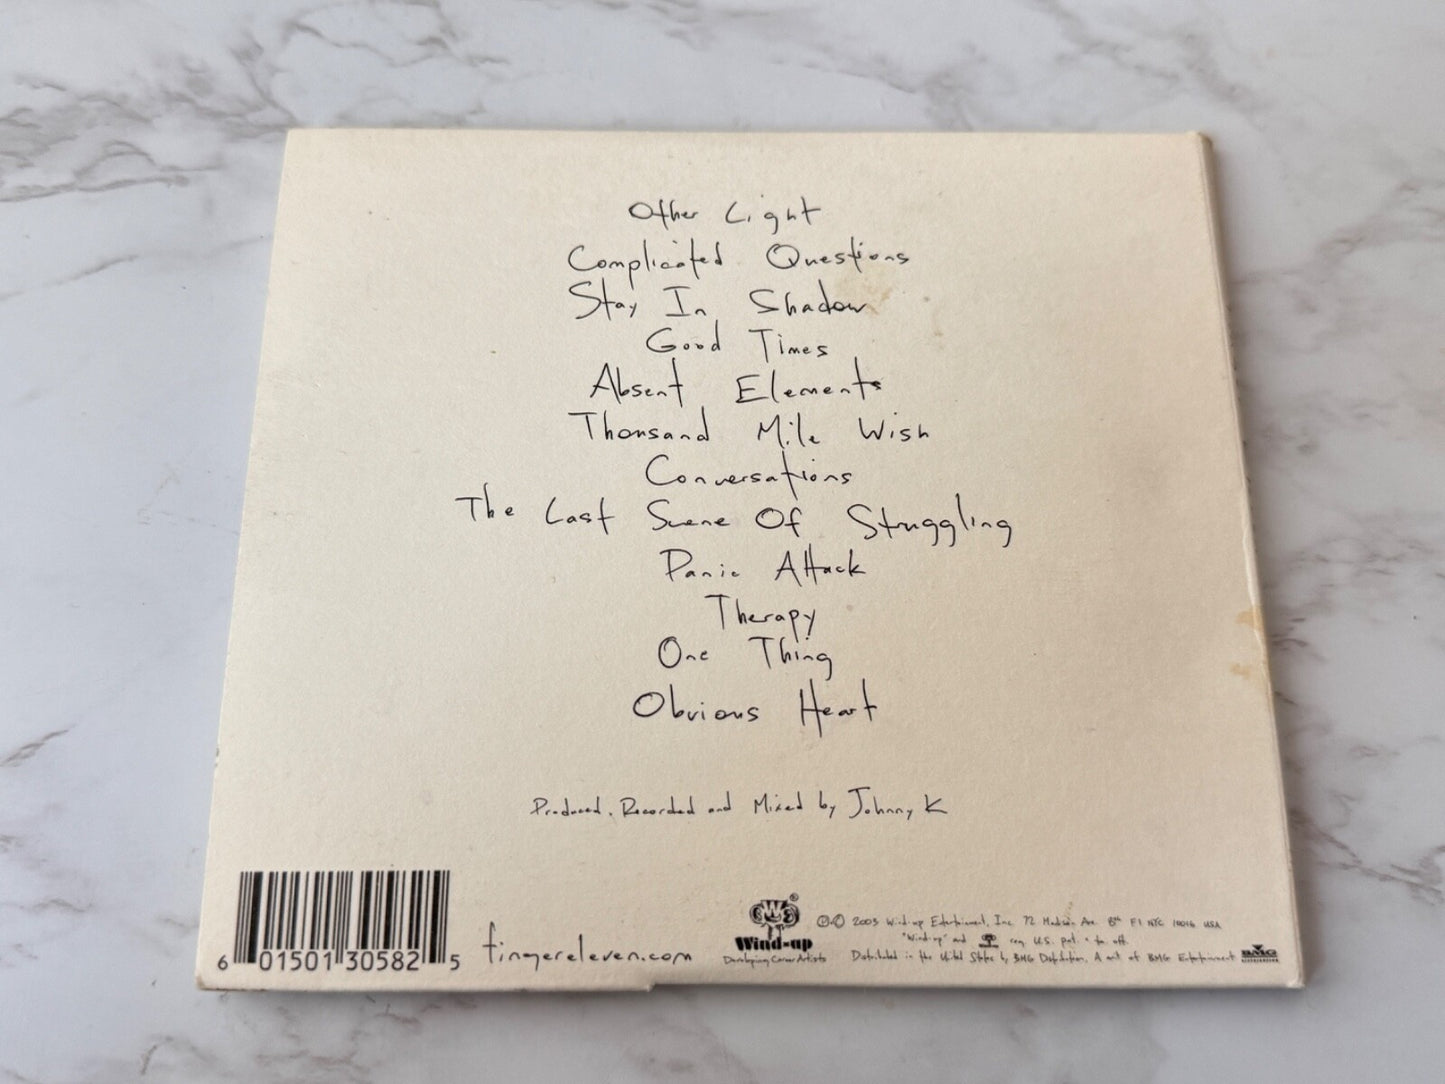 Other Light
Complicated Questions
Stay In Shadow
Good Times
Absent Elements
Thousand Mile Wish
Conversations
The Last Scene Of Struggling
Panic Attack
Therapy
One Thing
Obvious Heart
Produced, Recorded and Mixed by Johnny K
6 01501 30582 5
fingereleven.com
Wind-up®
Developing Career Artists
℗© 2003 Wind-up Entertainment, Inc. 72 Madison Ave. 8th Fl NYC 10016 USA
"Wind-up" and reg. U.S. pat. + tm. off.
Distributed in the United States by BMG Distribution, A unit of BMG Entertainment
BMG